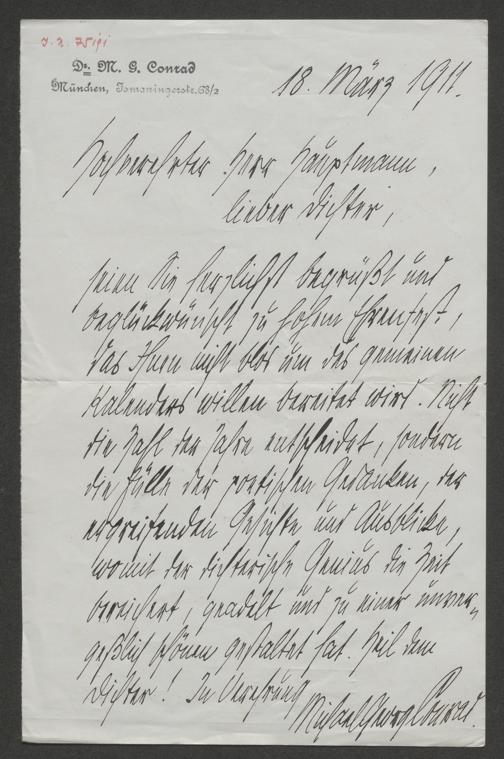 J. N. 75191
Dr. M. G. Conrad
München, Ismaningerstr. 68/2
18. März 1911.
Hochverehrter Herr Hauptmann,
lieber Dichter,
seien Sie herzlichst begrüßt und
beglückwünscht zu hohem Ehrenfest,
das Ihnen nicht blos um des gemeinen
Kalenders willen bereitet wird. Nicht
die Zahl der Jahre entscheidet, sondern
die Fülle der poetischen Gedanken, der
ergreifenden Gesichte und Ausblicke,
womit der dichterische Genius die Zeit
bereichert, geadelt und zu einer unver-
geßlich schönen gestaltet hat. Heil dem
Dichter! In Verehrung
Michael Georg Conrad.